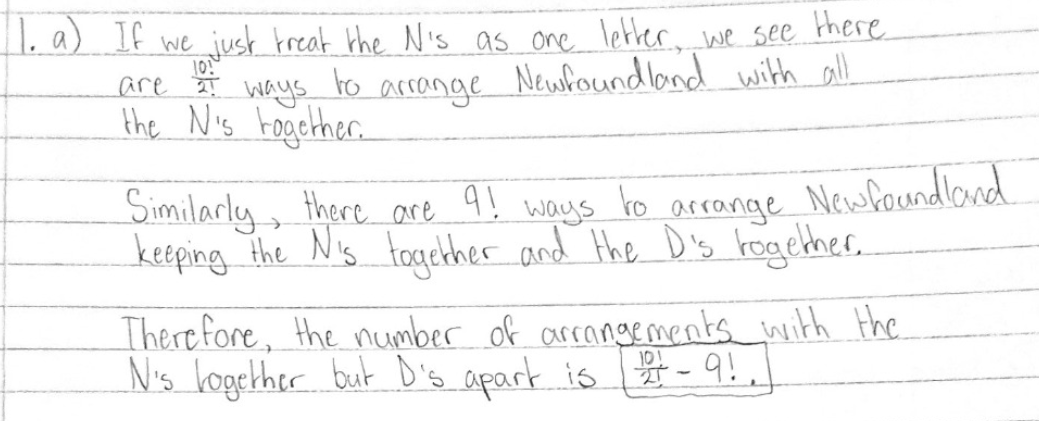 1. a) If we just treat the N's as one letter, we see there
are 10!/2! ways to arrange Newfoundland with all
the N's together.
Similarly, there are 9! ways to arrange Newfoundland
keeping the N's together and the D's together.
Therefore, the number of arrangements with the
N's together but D's apart is 10!/2! - 9!.